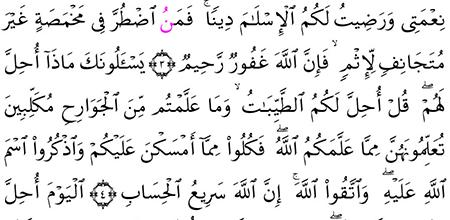 نِعْمَتِى وَرَضِيتُ لَكُمُ ٱلْإِسْلَـٰمَ دِينًا ۚ فَمَنُ ٱضْطُرَّ فِى مَخْمَصَةٍ غَيْرَ
مُتَجَانِفٍ لِّإِثْمٍ ۙ فَإِنَّ ٱللَّهَ غَفُورٌ رَّحِيمٌ ﴿٣﴾ يَسْـَٔلُونَكَ مَاذَآ أُحِلَّ
لَهُمْ ۖ قُلْ أُحِلَّ لَكُمُ ٱلطَّيِّبَـٰتُ ۙ وَمَا عَلَّمْتُم مِّنَ ٱلْجَوَارِحِ مُكَلِّبِينَ
تُعَلِّمُونَهُنَّ مِمَّا عَلَّمَكُمُ ٱللَّهُ ۖ فَكُلُوا۟ مِمَّآ أَمْسَكْنَ عَلَيْكُمْ وَٱذْكُرُوا۟ ٱسْمَ
ٱللَّهِ عَلَيْهِ ۖ وَٱتَّقُوا۟ ٱللَّهَ ۚ إِنَّ ٱللَّهَ سَرِيعُ ٱلْحِسَابِ ﴿٤﴾ ٱلْيَوْمَ أُحِلَّ